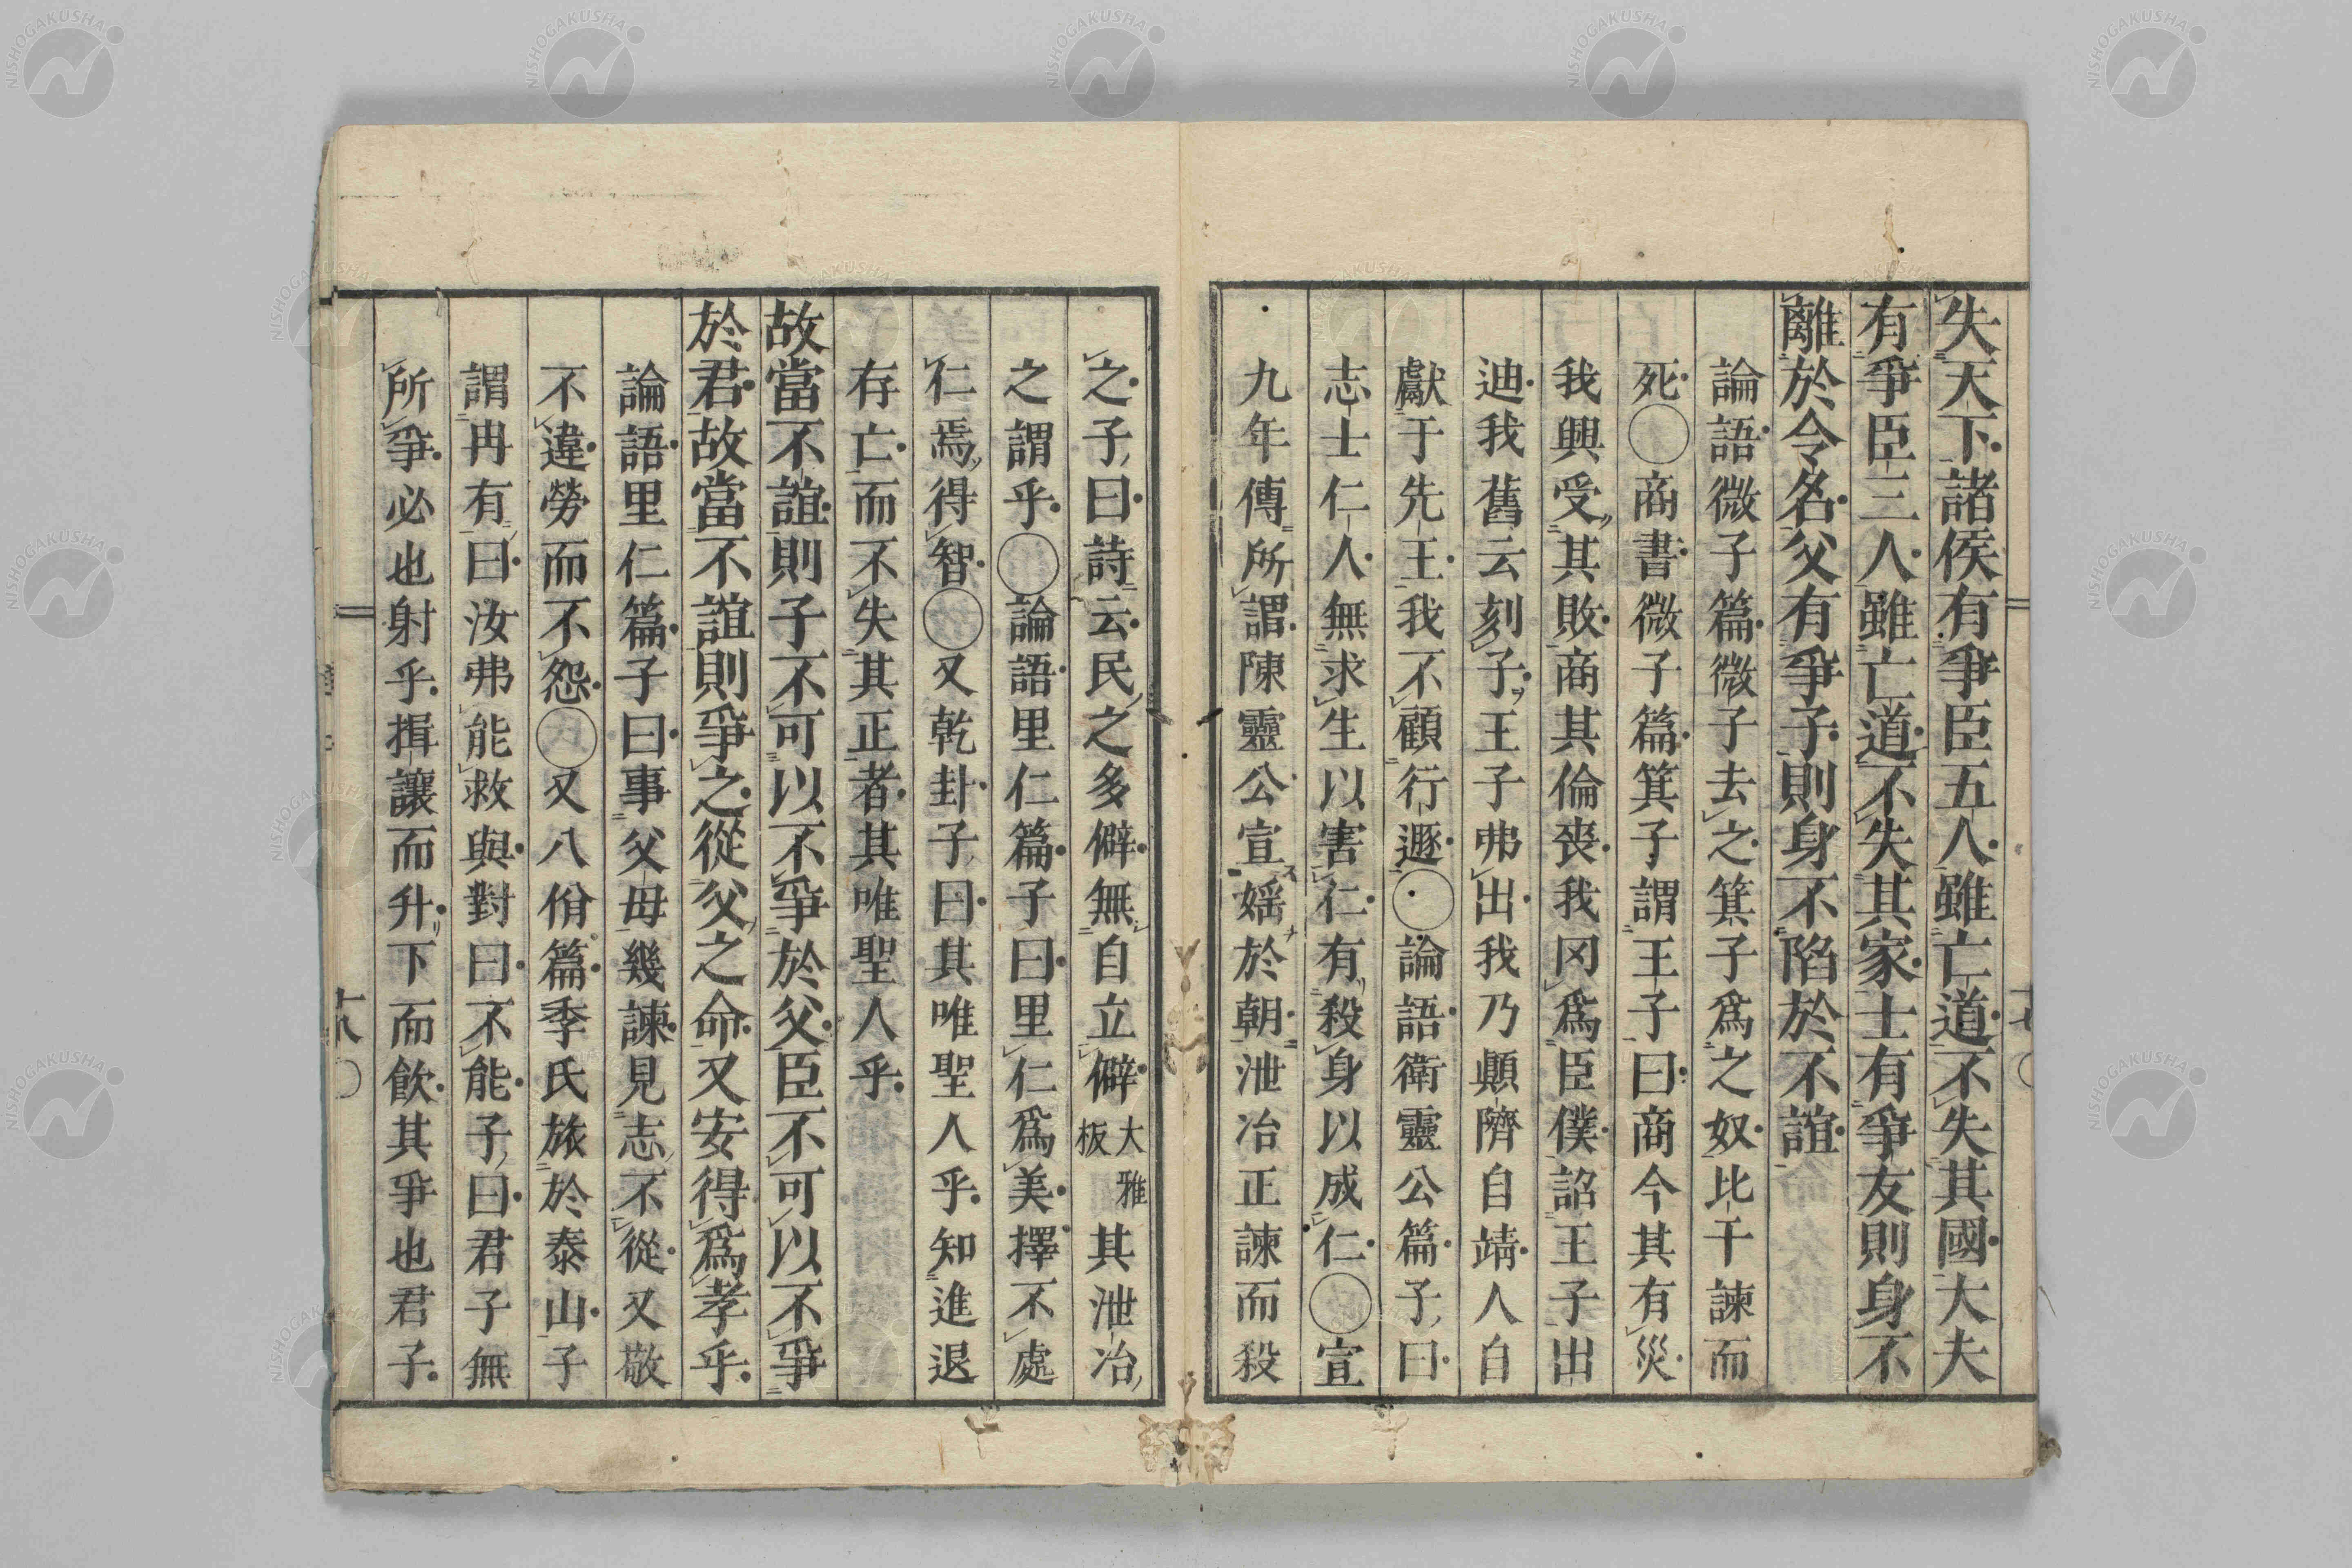 失天下諸侯有爭臣五人雖亡道不失其國大夫
有爭臣三人雖亡道不失其家士有爭友則身不
離於令名父有爭子則身不陷於不誼
論語微子篇微子去之箕子爲之奴比干諫而
死○商書微子篇箕子謂王子曰商今其有災
我興受其敗商其倫喪我罔爲臣僕詔王子出
迪我舊云刻子王子弗出我乃顚隮自靖人自
獻于先王我不顧行遯○論語衛靈公篇子曰
志士仁人無求生以害仁有殺身以成仁○宣
九年傳所謂陳靈公宣婬於朝泄冶正諫而殺
之子曰詩云民之多僻無自立僻大雅板其泄冶
之謂乎○論語里仁篇子曰里仁爲美擇不處
仁焉得智○又乾卦子曰其唯聖人乎知進退
存亡而不失其正者其唯聖人乎
故當不誼則子不可以不爭於父臣不可以不爭
於君故當不誼則爭之從父之命又安得爲孝乎
論語里仁篇子曰事父母幾諫見志不從又敬
不違勞而不怨○又八佾篇季氏旅於泰山子
謂冉有曰汝弗能救與對曰不能子曰君子無
所爭必也射乎揖讓而升下而飮其爭也君子
十八
NISHOGAKUSHA